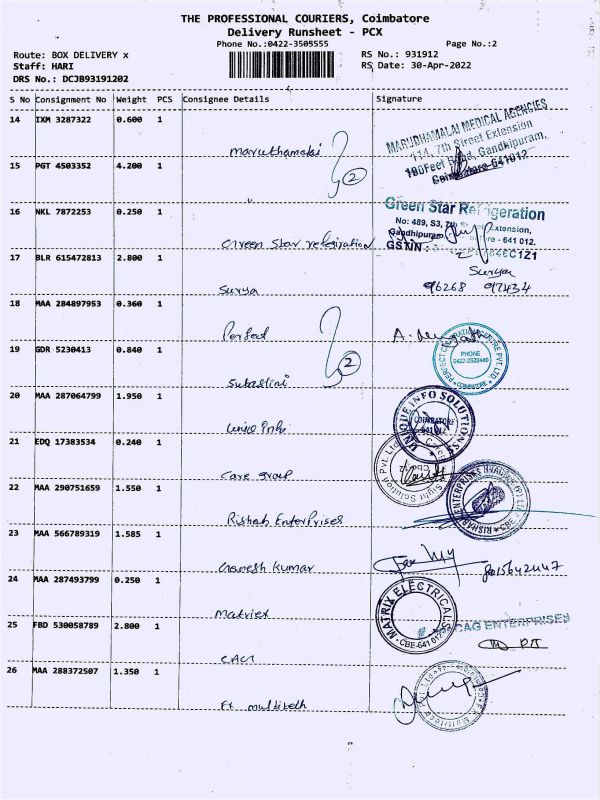 THE PROFESSIONAL COURIERS, Coimbatore
Delivery Runsheet - PCX
Phone No.:0422-3505555
Page No.:2
Route: BOX DELIVERY x
RS No.: 931912
Staff: HARI
RS Date: 30-Apr-2022
DRS No.: DCJB93191202
S No Consignment No Weight PCS Consignee Details Signature
14 IXM 3287322 0.600 1
MARUDHAMALAI MEDICAL AGENCIES
114, 7th Street Extension
100Feet Road, Gandhipuram,
Coimbatore-641012
Maruthamalai
15 PGT 4503352 4.200 1
2
16 NKL 7872253 0.250 1
Green Star Refrigeration
No: 489, S3, 7th Extension,
Gandhipuram - 641 012.
GSTIN :
Green Star refrigiration
17 BLR 615472813 2.800 1
Surya
Surya
96268 97434
18 MAA 284897953 0.360 1
Perfect
PHONE
0422-2522440
COIMBATORE
19 GDR 5230413 0.840 1
2
20 MAA 287064799 1.950 1
UNIQUE INFO SOLUTIONS
COIMBATORE
641012
21 EDQ 17383534 0.240 1
Care group
Sight Solution Pvt. Ltd
22 MAA 290751659 1.550 1
Rishab Enterprises
ENTERPRISES
CBE
23 MAA 566789319 1.585 1
Ganesh Kumar
24 MAA 287493799 0.250 1
Matrix
MATRIX ELECTRICALS
CBE-641 012
25 FBD 530058789 2.800 1
CAG ENTERPRISES
26 MAA 288372507 1.350 1
Ft multitech